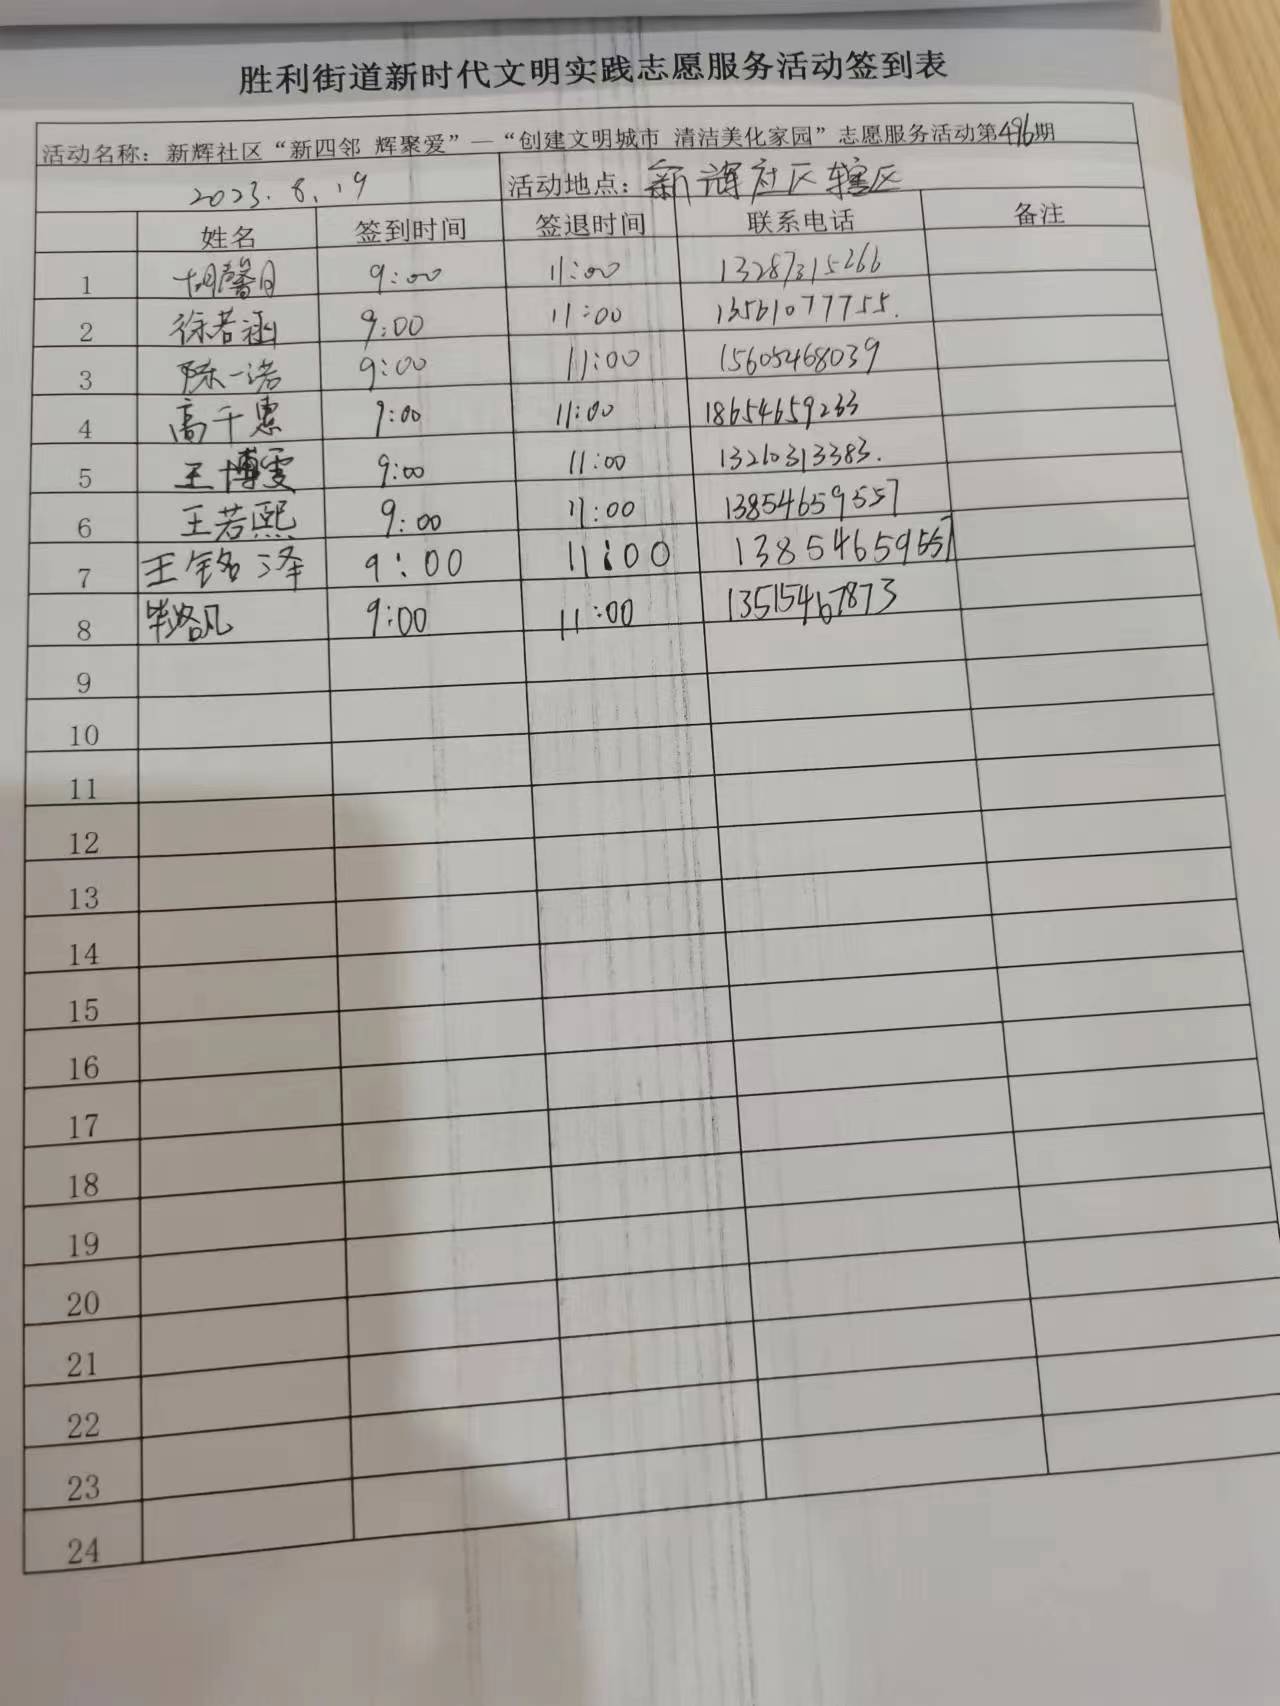 胜利街道新时代文明实践志愿服务活动签到表
活动名称：新辉社区“新四邻 辉聚爱”—“创建文明城市 清洁美化家园”志愿服务活动第496期
2023.8.19 活动地点：新辉社区辖区
姓名 签到时间 签退时间 联系电话 备注
1 胡馨月 9:00 11:00 13287315266
2 徐若涵 9:00 11:00 13561077755.
3 陈一诺 9:00 11:00 15605468039
4 高千惠 9:00 11:00 18654659233
5 王博雯 9:00 11:00 13210313383.
6 王若熙 9:00 11:00 13854659557
7 王铭泽 9:00 11:00 13854659557
8 毕洛凡 9:00 11:00 13515467873
9
10
11
12
13
14
15
16
17
18
19
20
21
22
23
24